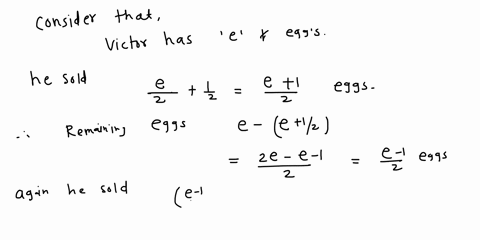 Consider that,
Victor has 'e' & egg's.
he sold e/2 + 1/2 = e+1/2 eggs.
∴ Remaining eggs e - (e+1/2)
= 2e-e-1/2 = e-1/2 eggs
again he sold (e-1